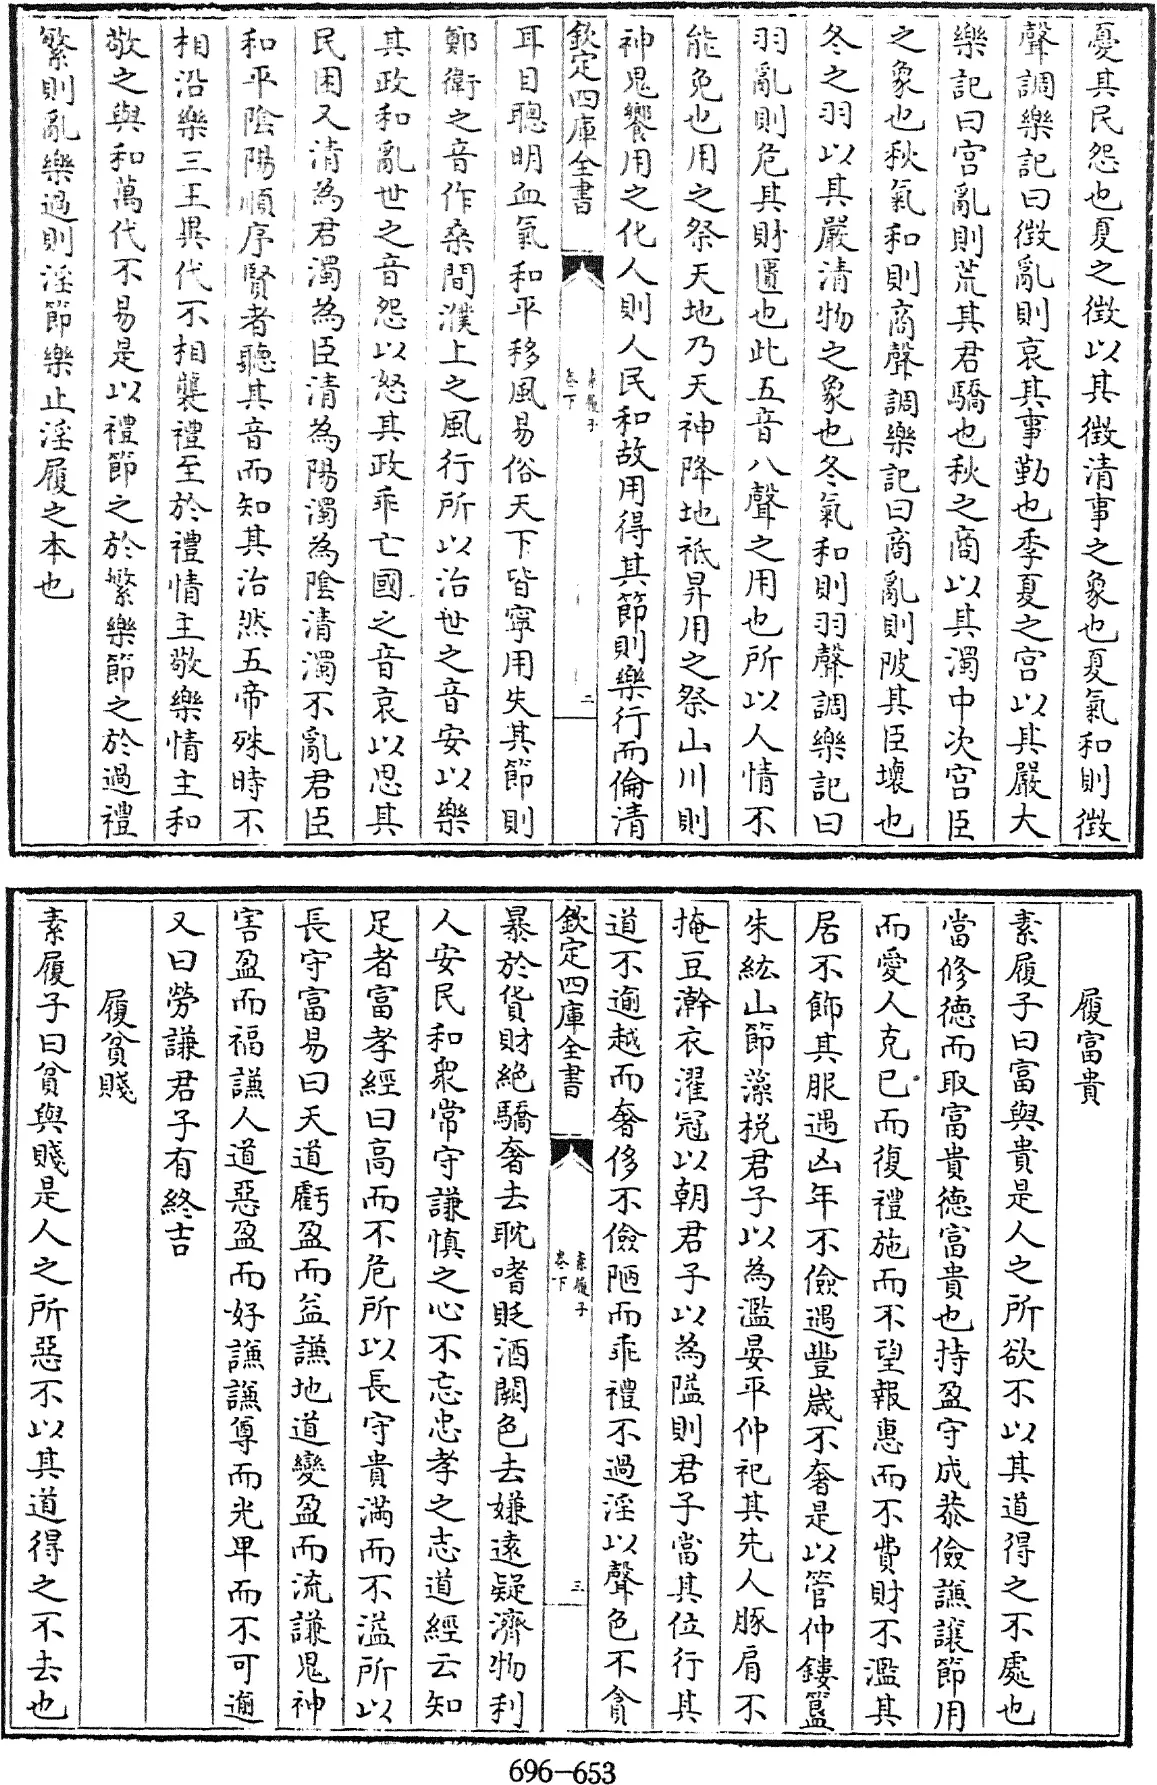 憂其民怨也夏之徵以其徵清事之象也夏氣和則徵
聲調樂記曰徴亂則哀其事勤也季夏之宫以其嚴大
樂記曰宫亂則荒其君驕也秋之商以其濁中次宫臣
之象也秋氣和則商聲調樂記曰商亂則陂其臣壞也
冬之羽以其嚴清物之象也冬氣和則羽聲調樂記曰
羽亂則危其財匱也此五音八聲之用也所以人情不
能免也用之祭天地乃天神降地祗昇用之祭山川則
神鬼饗用之化人則人民和故用得其節則樂行而倫清
欽定四庫全書
素履子
卷下
二
耳目聰明血氣和平移風易俗天下皆寧用失其節則
鄭衛之音作桑間濮上之風行所以治世之音安以樂
其政和亂世之音怨以怒其政乖亡國之音哀以思其
民困又清為君濁為臣清為陽濁為陰清濁不亂君臣
和平陰陽順序賢者聽其音而知其治然五帝殊時不
相沿樂三王異代不相襲禮至於禮情主敬樂情主和
敬之與和萬代不易是以禮節之於繁樂節之於過禮
繁則亂樂過則淫節樂止淫履之本也
履富貴
素履子曰富與貴是人之所欲不以其道得之不處也
當修德而取富貴德富貴也持盈守成恭儉譙讓節用
而愛人克已而復禮施而不望報惠而不費財不濫其
居不飾其服遇凶年不儉遇豐歲不奢是以管仲鏤簋
朱紘山節藻梲君子以為濫晏平仲祀其先人豚肩不
掩豆澣衣濯冠以朝君子以為隘則君子當其位行其
道不逾越而奢侈不儉陋而乖禮不過淫以聲色不貪
欽定四庫全書
素履子
卷下
三
暴於貨財絶驕奢去耽嗜貶酒闕色去嫌遠疑濟物利
人安民和衆常守謙慎之心不忘忠孝之志道經云知
足者富孝經曰高而不危所以長守貴滿而不溢所以
長守富易曰天道虧盈而益謙地道變盈而流謙鬼神
害盈而福謙人道惡盈而好謙謙尊而光卑而不可逾
又曰勞謙君子有終吉
履貧賤
素履子曰貧與賤是人之所惡不以其道得之不去也
696-653